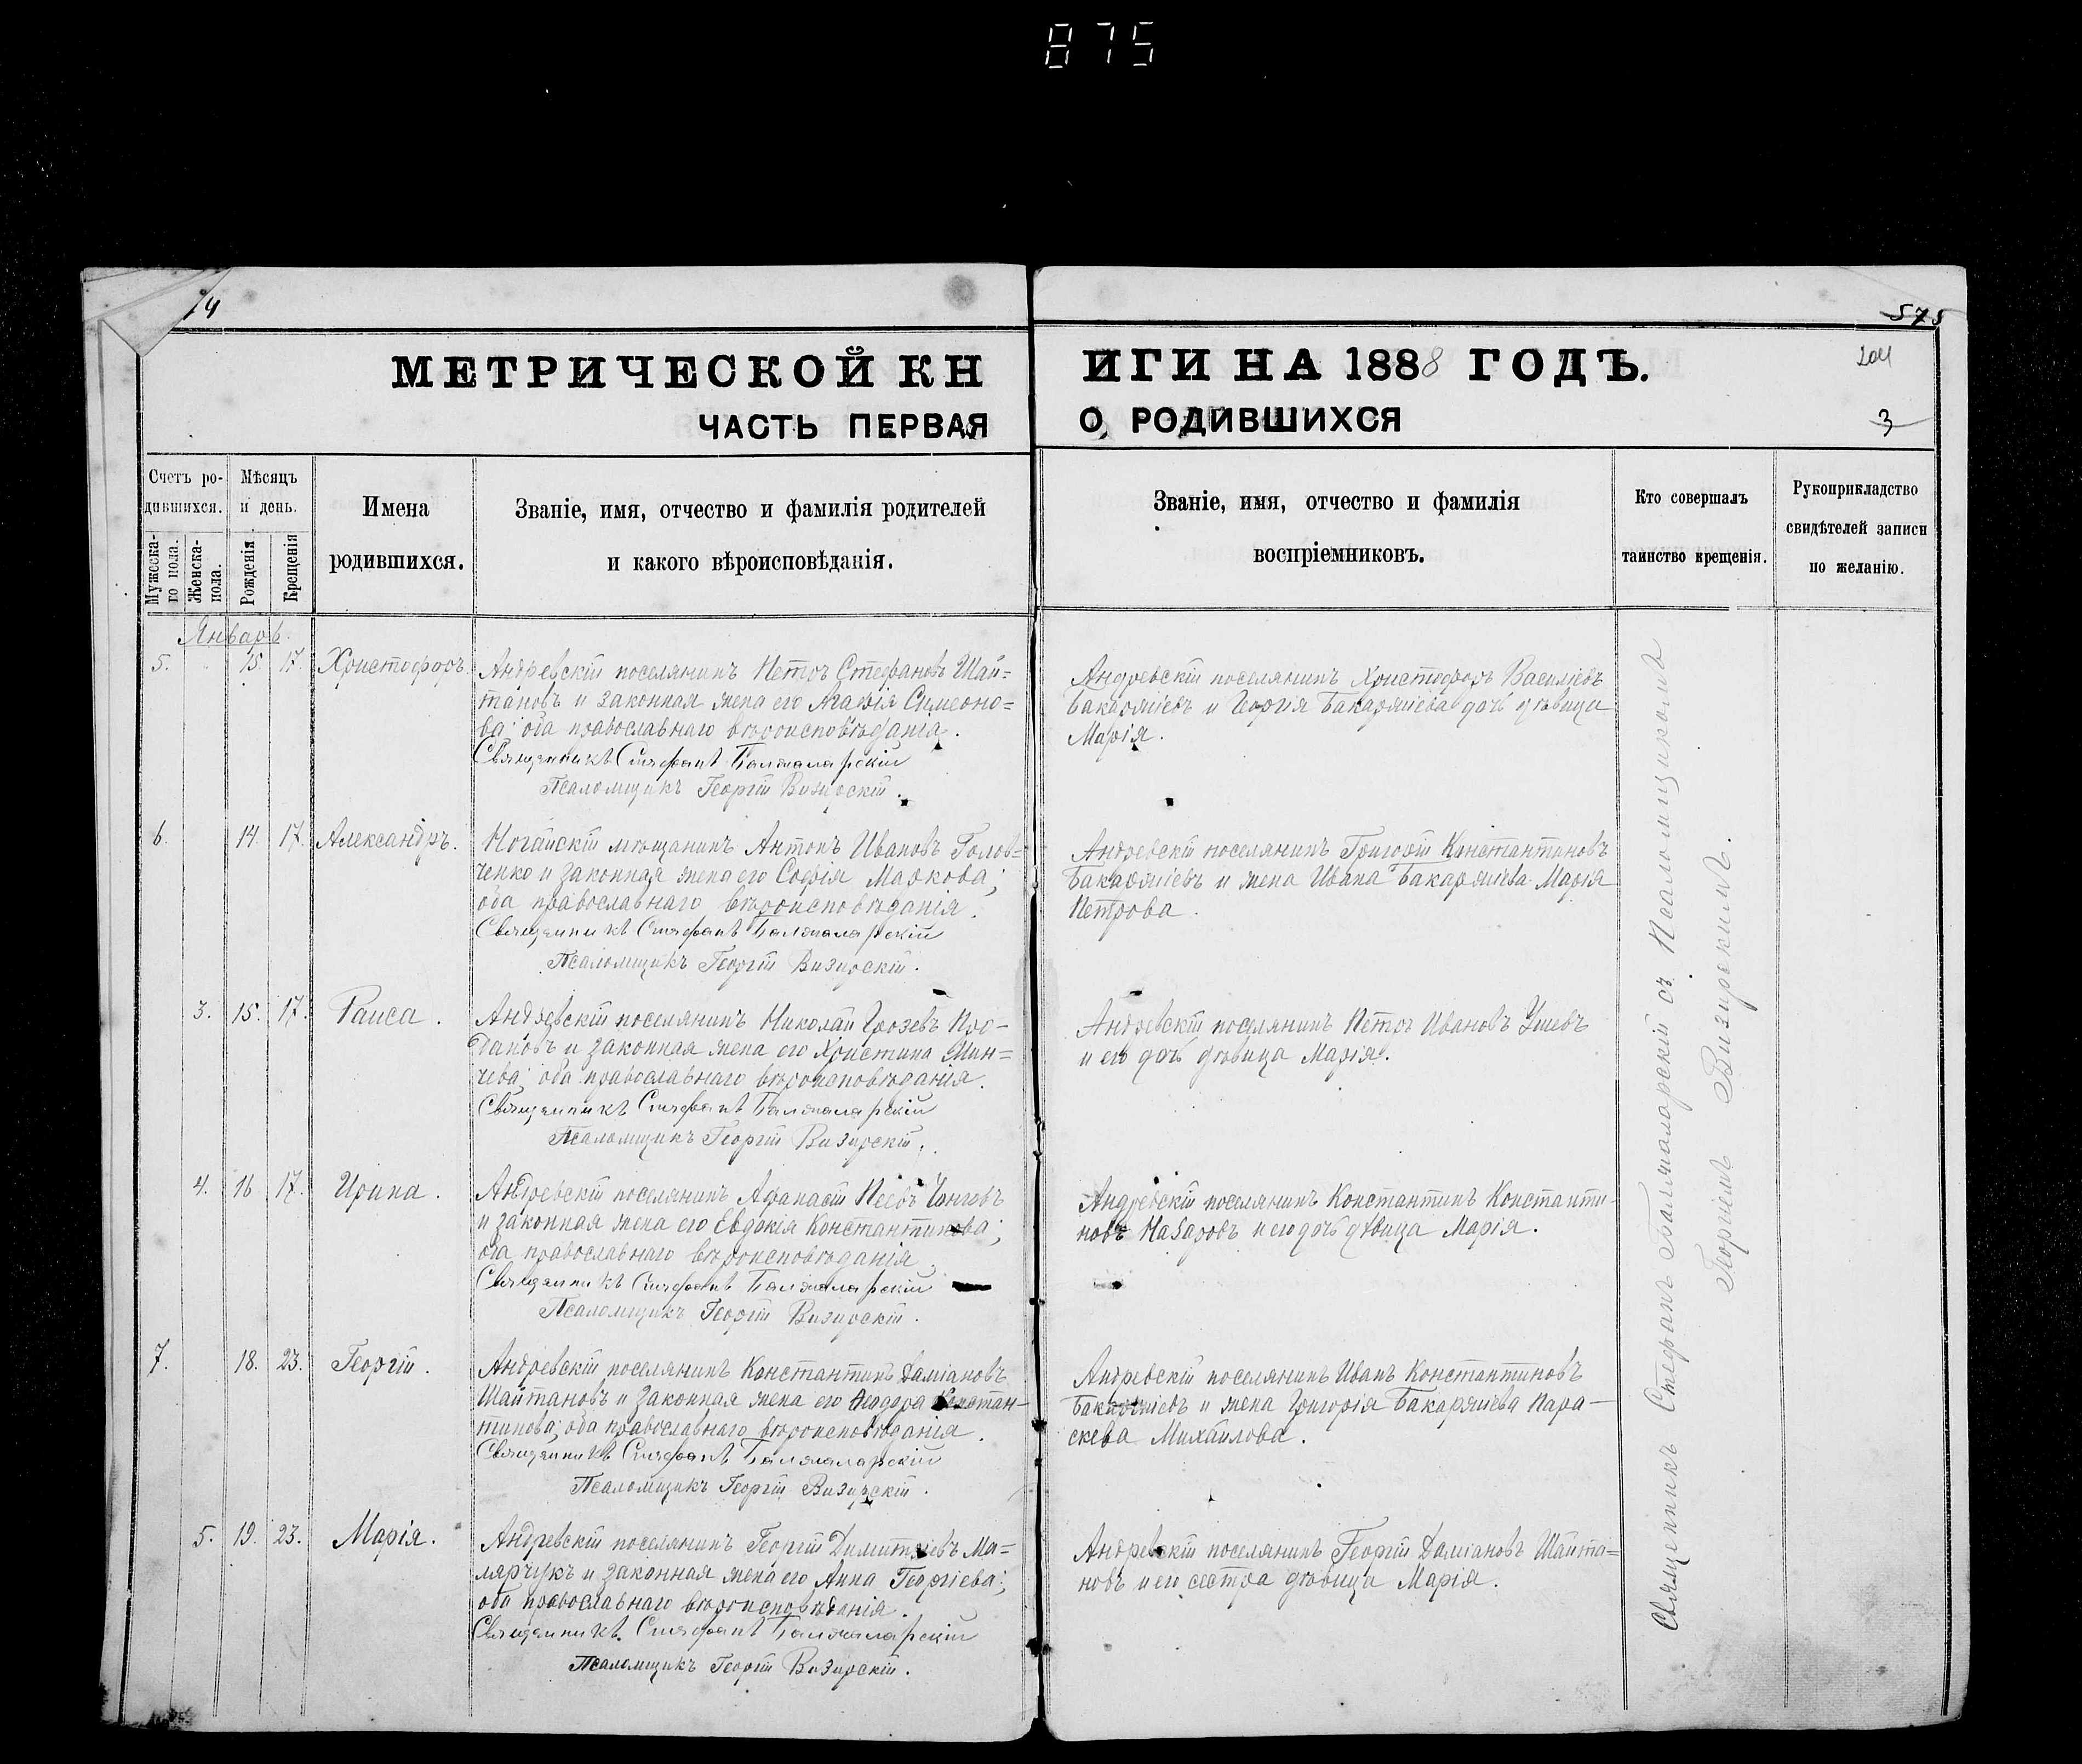 875
74
575
МЕТРИЧЕСКОЙ КНИГИ НА 1888 ГОДЪ.
204
ЧАСТЬ ПЕРВАЯ О РОДИВШИХСЯ
3
Счетъ ро-
дившихся.
Мужеска-
го пола.
Женска-
пола.
Мѣсяцъ
и день.
Рожденія
Крещенія
Имена
родившихся.
Званіе, имя, отчество и фамилія родителей
и какого вѣроисповѣданія.
Званіе, имя, отчество и фамилія
воспріемниковъ.
Кто совершалъ
таинство крещенія.
Рукоприкладство
свидѣтелей записи
по желанію.
Январь.
5. 15. 17. Христофоръ.
Андревскій поселянинъ Петръ Стефановъ Шай=
тановъ и законная жена его Агафія Симеоно=
ва; оба православнаго вѣроисповѣданія.
Священникъ Стефанъ Балжаларскій
Псаломщикъ Георгій Визирскій.
Андревскій поселянинъ Христофоръ Василіевъ
Бакаржіевъ и Георгія Бакаржіева дочь дѣвица
Марія.
6. 14. 17. Александръ.
Ногайскій мѣщанинъ Антонъ Ивановъ Голов=
ченко и законная жена его Софія Маркова;
оба православнаго вѣроисповѣданія.
Священникъ Стефанъ Балжаларскій
Псаломщикъ Георгій Визирскій.
Андревскій поселянинъ Григорій Константиновъ
Бакаржіевъ и жена Ивана Бакаржіева Марія
Петрова.
3. 15. 17. Раиса.
Андревскій поселянинъ Николай Грозевъ Про-
дановъ и законная жена его Христина Мин=
чева; оба православнаго вѣроисповѣданія.
Священникъ Стефанъ Балжаларскій
Псаломщикъ Георгій Визирскій.
Андревскій поселянинъ Петръ Ивановъ
и его дочь дѣвица Марія.
4. 16 17. Ирина.
Андревскій поселянинъ Афанасій
и законная жена его Евдокія Константинова;
оба православнаго вѣроисповѣданія.
Священникъ Стефанъ Балжаларскій
Псаломщикъ Георгій Визирскій.
Андревскій поселянинъ Константинъ Константи-
новъ Назаровъ и его дочь дѣвица Марія.
7. 18. 23. Георгій.
Андревскій поселянинъ Константинъ Даміановъ
Шайтановъ и законная жена его Ѳеодора Констан-
тинова; оба православнаго вѣроисповѣданія.
Священникъ Стефанъ Балжаларскій
Псаломщикъ Георгій Визирскій.
Андревскій поселянинъ Иванъ Константиновъ
Бакаржіевъ и жена Григорія Бакаржіева Пара-
скева Михайлова.
5. 19. 23. Марія.
Андревскій поселянинъ Георгій Димитріевъ Ма=
лярчукъ и законная жена его Анна Георгіева;
оба православнаго вѣроисповѣданія.
Священникъ Стефанъ Балжаларскій
Псаломщикъ Георгій Визирскій.
Андревскій поселянинъ Георгій Даміановъ Шайта=
новъ и его сестра дѣвица Марія.
Священникъ Стефанъ Балжаларскій съ Псаломщикомъ
Георгіемъ Визирскимъ.